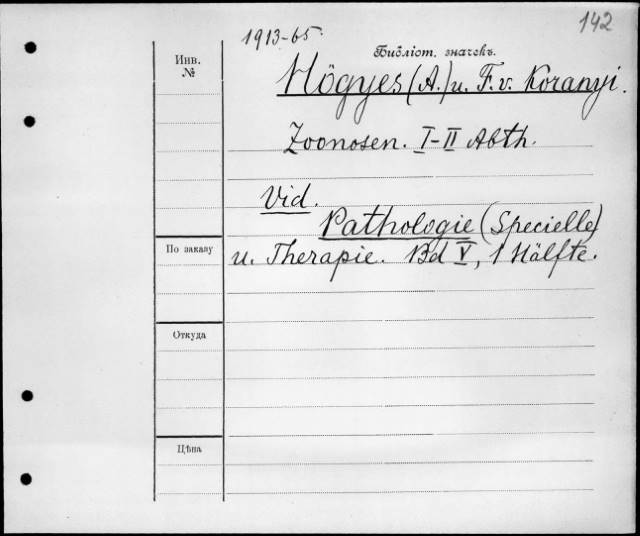 142
1913-65.
Инв.
№
Библіот. значекъ.
Högyes (A.) u. F. v. Koranyi.
Zoonosen. I-II Abth.
Vid.
Pathologie (Specielle)
По заказу
u. Therapie. Bd V, 1 Hälfte.
Откуда
Цѣна